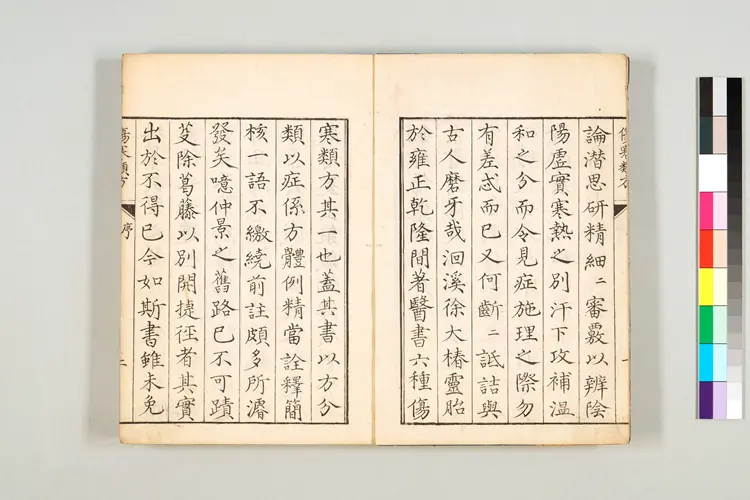 論潜思研精細〻審覈以辨陰
陽虛實寒熱之別汗下攻補温
和之分而令見症施理之際勿
有差忒而已又何齗〻詆詰與
古人磨牙哉洄溪徐大椿靈胎
於雍正乾隆間著醫書六種傷
一
寒類方其一也蓋其書以方分
類以症係方體例精當詮釋簡
核一語不繳繞前註頗多所濬
發矣噫仲景之舊路已不可蹟
芟除葛藤以別開捷徑者其實
出於不得已今如斯書雖未免
傷寒類方
序
二